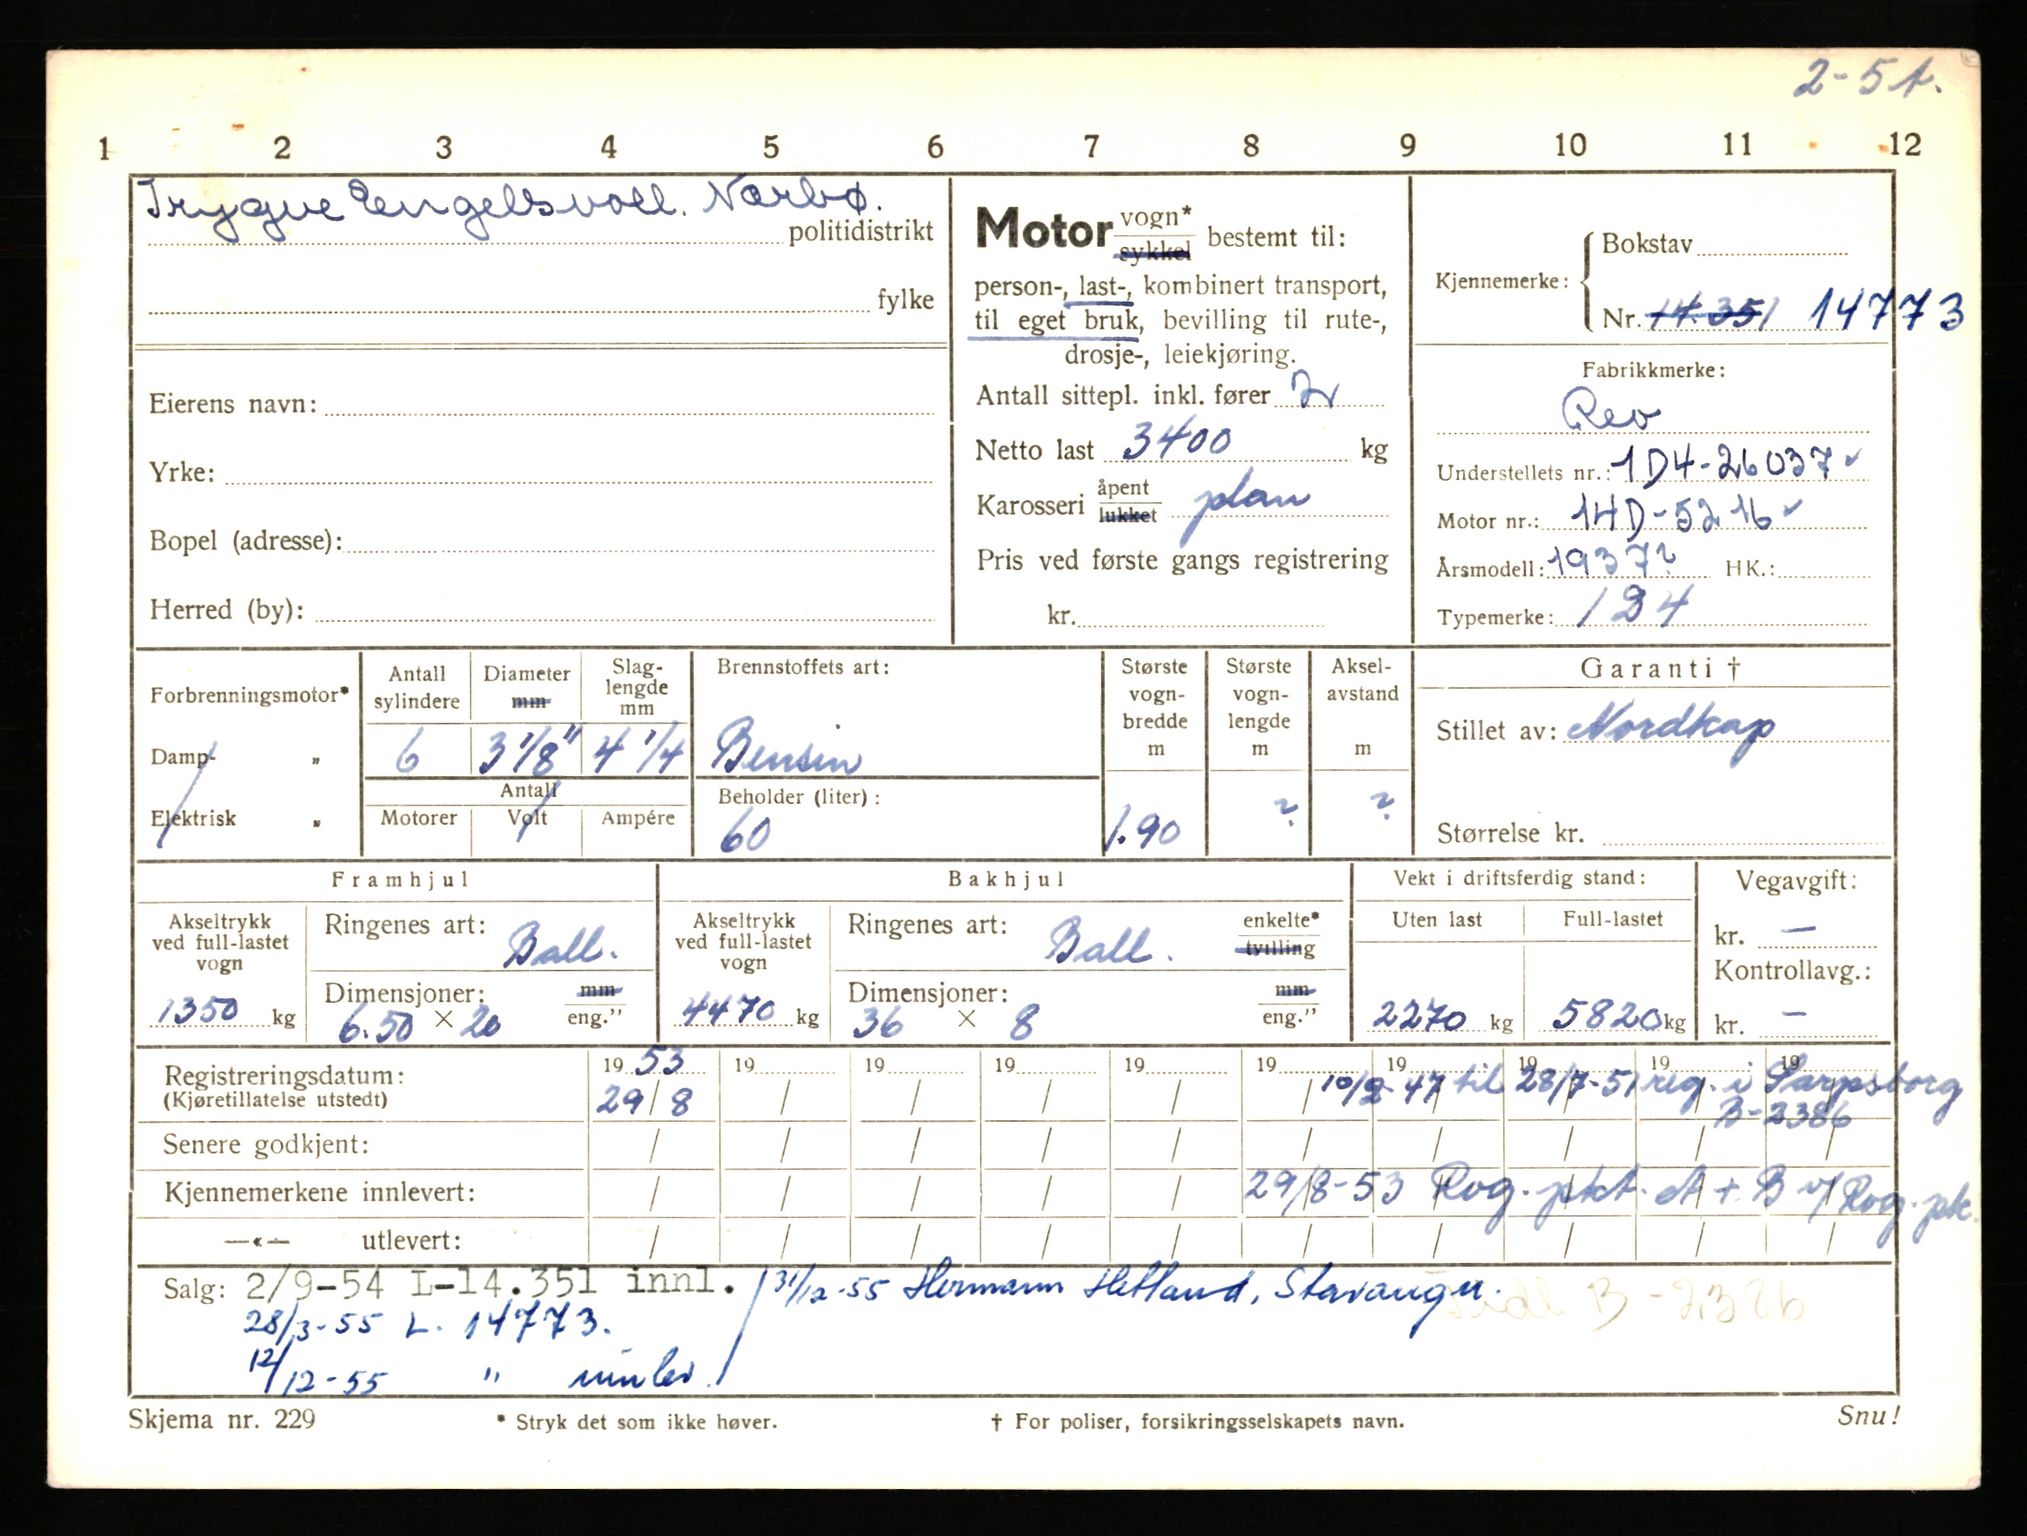 2-5 t.
1 2 3 4 5 6 7 8 9 10 11 12
Trygve Engelsvoll. Nærbø.
politidistrikt
fylke
Eierens navn:
Yrke:
Bopel (adresse):
Herred (by):
Motor vogn* sykkel bestemt til:
person-, last-, kombinert transport,
til eget bruk, bevilling til rute-,
drosje-, leiekjøring.
Antall sittepl. inkl. fører 2
Netto last 3400 kg
Karosseri åpent lukket plan
Pris ved første gangs registrering
kr.
Kjennemerke: Bokstav
Nr. 14.351 14773
Fabrikkmerke:
Reo
Understellets nr.: 1D4-26037
Motor nr.: 14D-5216
Årsmodell: 1937? HK.:
Typemerke: 1D4
Forbrenningsmotor*
Damp- „
Elektrisk „
Antall sylindere
6
Diameter mm
3 1/8"
Slag-lengde mm
4 1/4
Antall
Motorer Volt Ampére
Brennstoffets art:
Bensin
Beholder (liter):
60
Største vogn-bredde m
1.90
Største vogn-lengde m
?
Aksel-avstand m
?
Garanti †
Stillet av: Nordkap
Størrelse kr.
Framhjul
Akseltrykk ved full-lastet vogn
1350 kg
Ringenes art: Ball.
Dimensjoner: mm
6.50 × 20 eng."
Bakhjul
Akseltrykk ved full-lastet vogn
4470 kg
Ringenes art: Ball. enkelte* tvilling
Dimensjoner: mm
36 × 8 eng."
Vekt i driftsferdig stand:
Uten last Full-lastet
2270 kg 5820 kg
Vegavgift:
kr. —
Kontrollavg.:
kr. —
Registreringsdatum: 19 53 19 19 19 19 19 19 19 19 19
(Kjøretillatelse utstedt) 29/8 10/2-47 til 28/7-51 reg. i Sarpsborg
B-2386
Senere godkjent:
Kjennemerkene innlevert: 29/8-53 Rog. pkt. A + B v/ Rog. pk.
—«— utlevert:
Salg: 2/9-54 L-14.351 innl. 31/12-55 Hermann Hetland, Stavanger.
28/3-55 L. 14773. B-2386
12/12-55 " innlev.
Skjema nr. 229 * Stryk det som ikke høver. † For poliser, forsikringsselskapets navn. Snu!